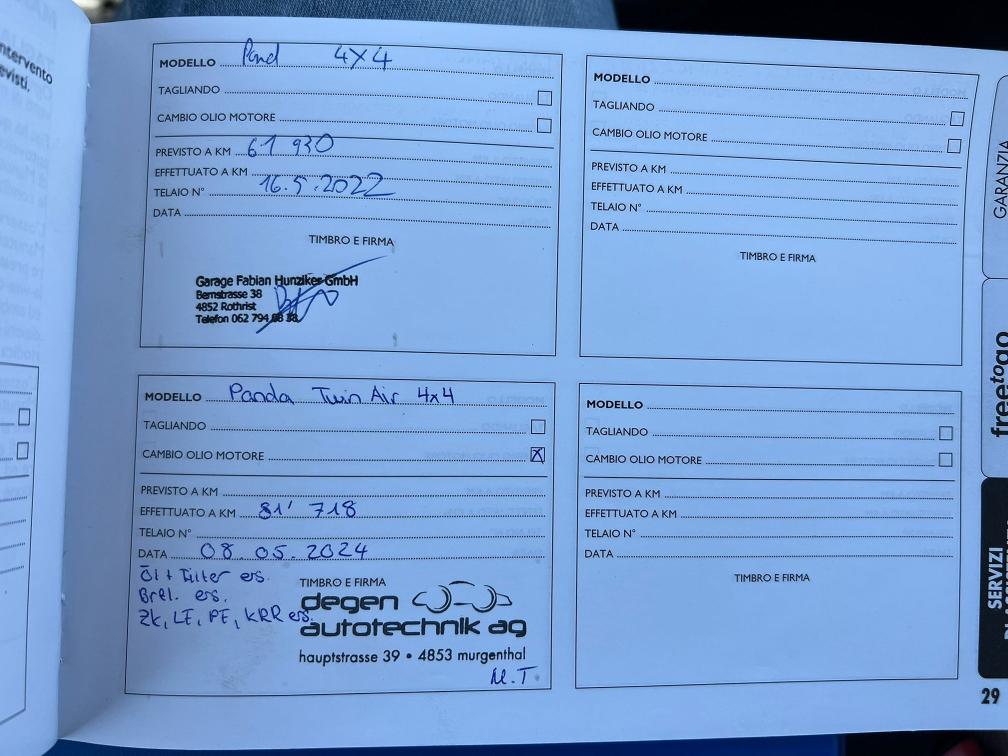 ntervento
evisti.
MODELLO Pand 4x4
TAGLIANDO
CAMBIO OLIO MOTORE
PREVISTO A KM 61 930
EFFETTUATO A KM
TELAIO N° 16.5.2022
DATA
TIMBRO E FIRMA
Garage Fabian Hunziker GmbH
Bernstrasse 38
4852 Rothrist
Telefon 062 794
MODELLO
TAGLIANDO
CAMBIO OLIO MOTORE
PREVISTO A KM
EFFETTUATO A KM
TELAIO N°
DATA
TIMBRO E FIRMA
MODELLO Panda Twin Air 4x4
TAGLIANDO
CAMBIO OLIO MOTORE X
PREVISTO A KM
EFFETTUATO A KM 81' 718
TELAIO N°
DATA 08.05.2024
Öl + Filter ers.
Brfl. ers.
Zk, LF, PF, KRR ers.
TIMBRO E FIRMA
degen
autotechnik ag
hauptstrasse 39 • 4853 murgenthal
M.T
MODELLO
TAGLIANDO
CAMBIO OLIO MOTORE
PREVISTO A KM
EFFETTUATO A KM
TELAIO N°
DATA
TIMBRO E FIRMA
GARANZIA
freetogo
SERVIZI
29